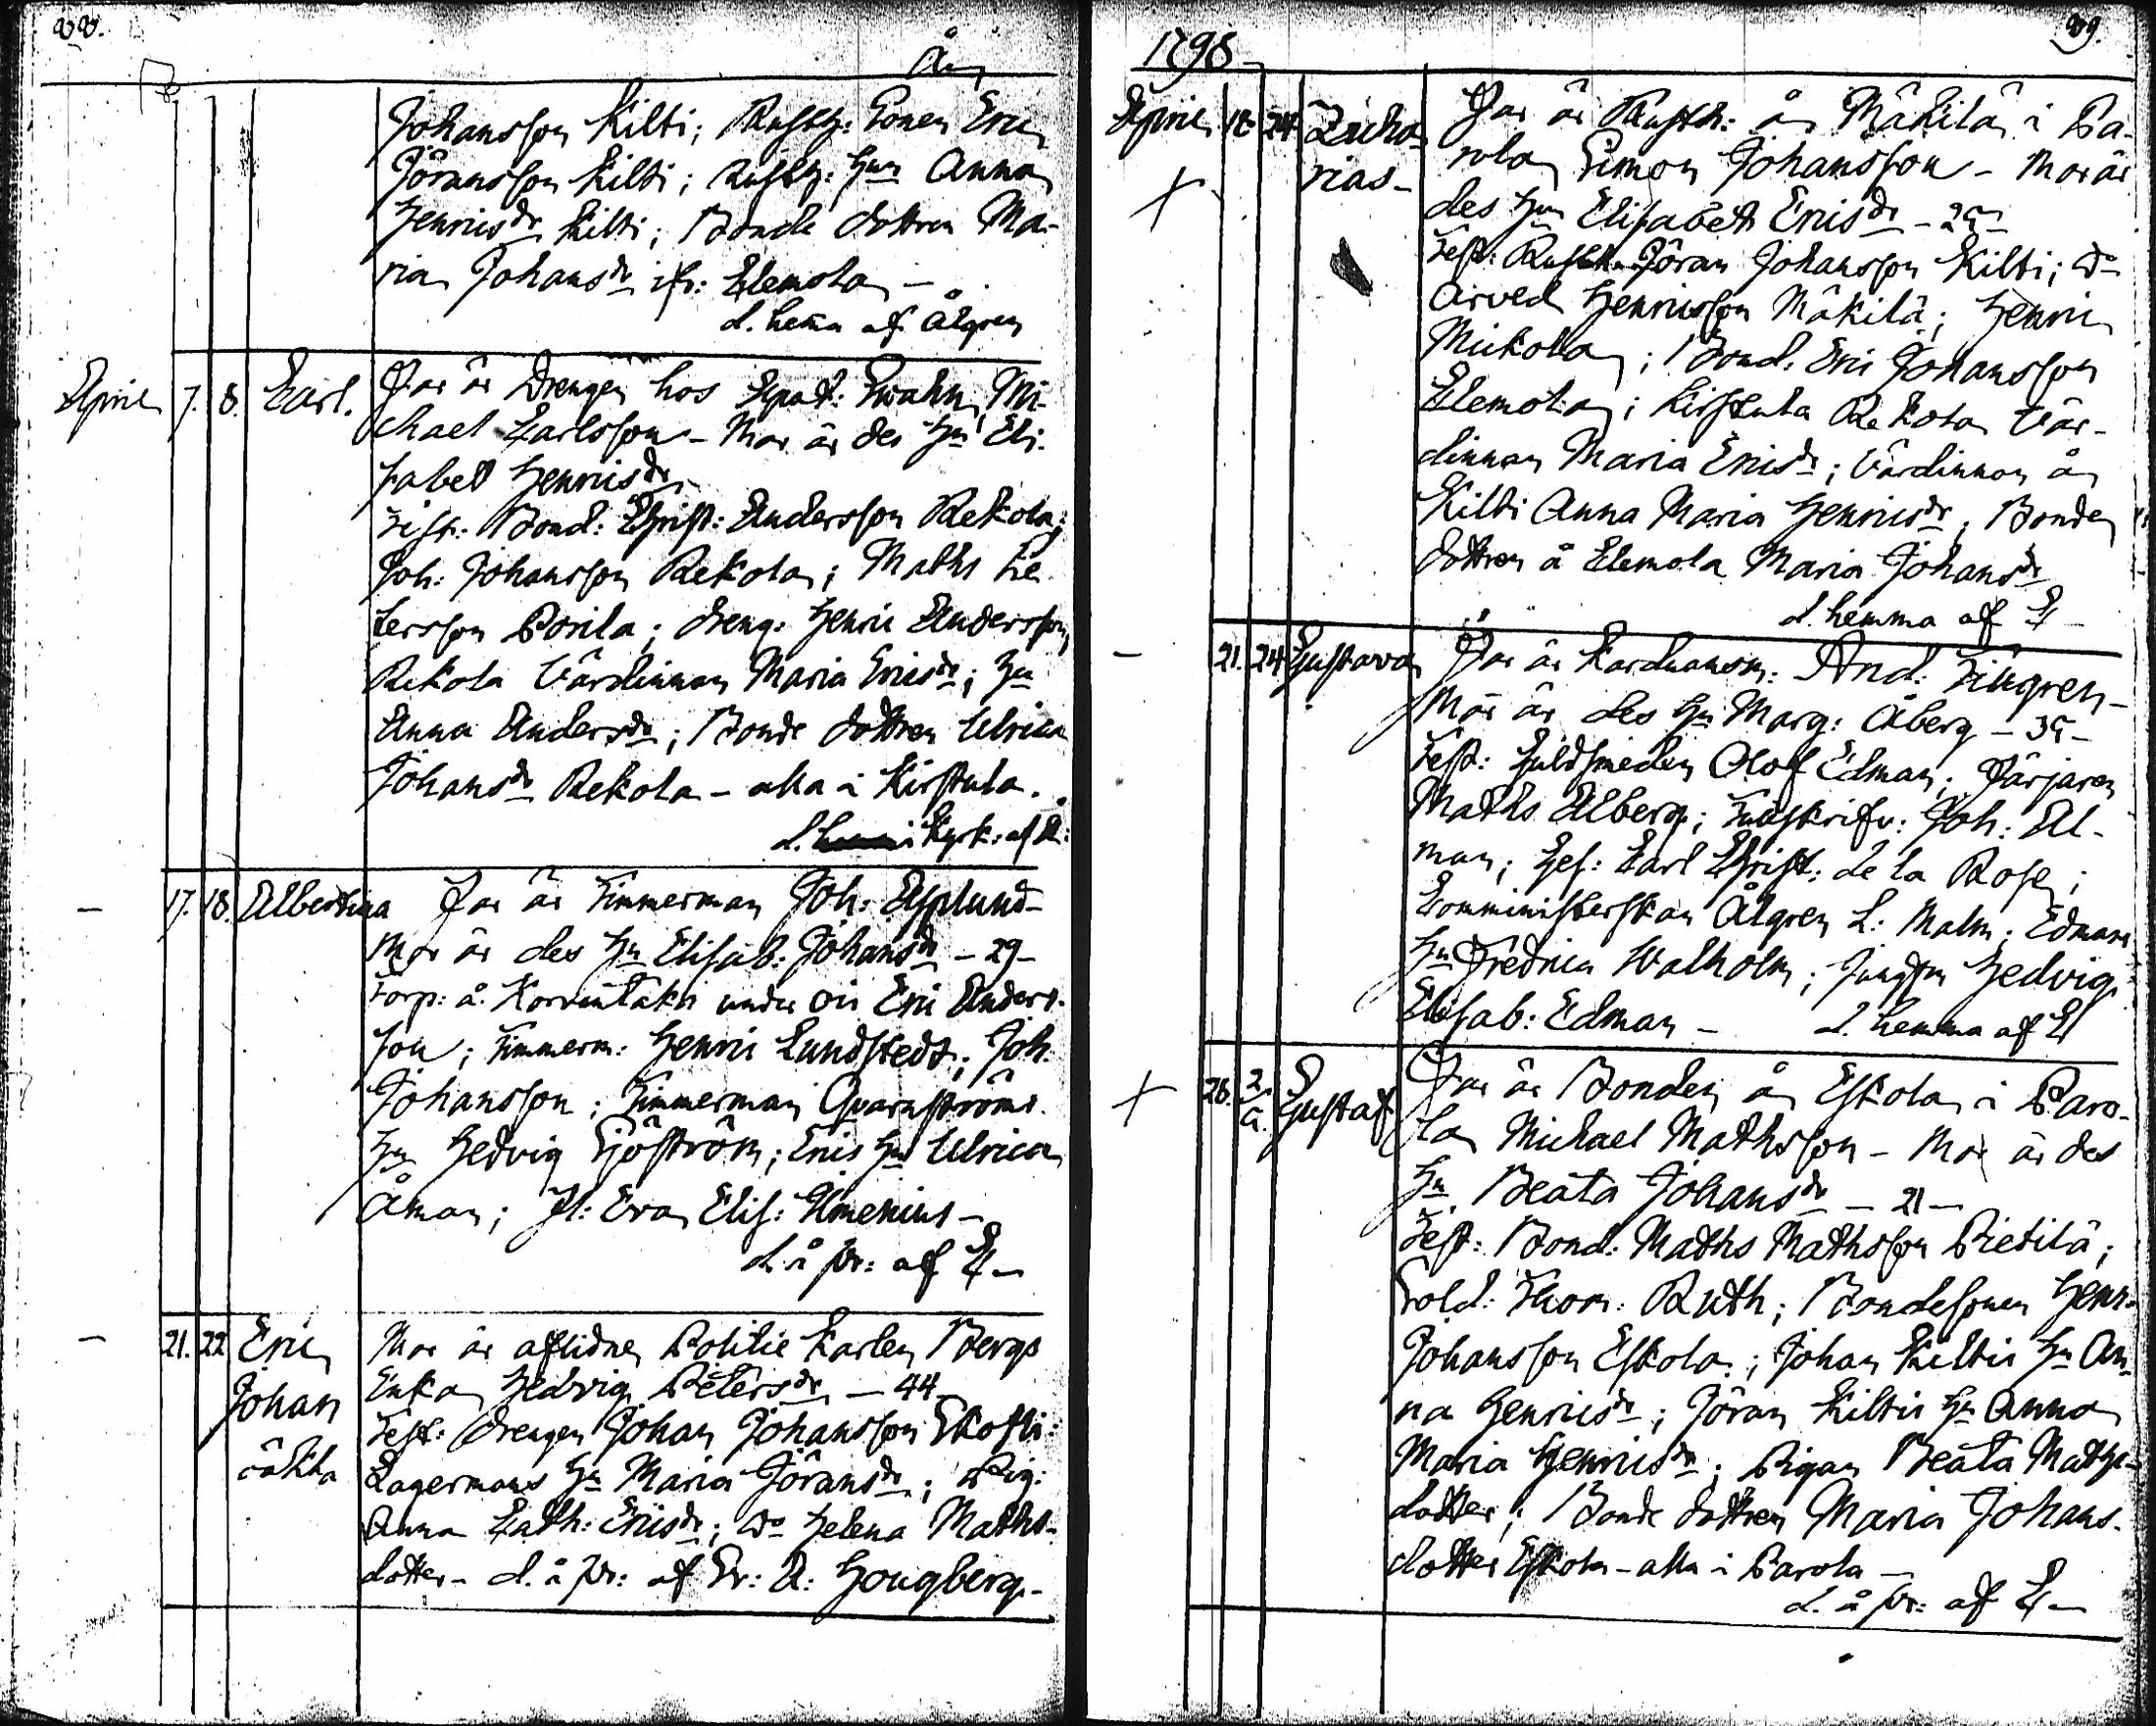 88.
År
Johansson Kilti; Rusth: Sonen Eric
Jöransson Kilti; Rusth: Hun Anna
Henricsdr Kilti; Bonde dottren Ma-
ria Johansdr ifr: Elemola -
d. hema af Ålgren
April 7. 8. Carl. Far är Drengen hos Apot: Swahn, Mi-
chael Carlsson - Mor är des Hu Eli-
sabet Henricsdr
Test: Bond: Christ: Andersson Rekola;
Joh: Johansson Rekola; Maths Pe-
tersson Porila; dreng: Henric Andersson
Rekola Värdinnan Maria Ericsdr; Hu
Anna Andersdr; Bonde dottren Ulrica
Johansdr Rekola - alla i Kirstula.
d. i Kyrk: af A:
- 17. 18. Albertina Far är Timmerman Joh: Asplund -
Mor är des Hu Elisab: Johansdr - 29 -
Torp: å under Eric Anders-
son; Timmerm: Henric Lundstedt; Joh:
Johansson; Timmerman Qvarnströms
Hu Hedvig Sjöström; Erics Hu Ulrica
Åman; Jf: Eva Elis: Ilmenius -
d. å pr: af A -
- 21. 22 Eric Mor är aflidne Politie Karlen Bergs
Johan Enka Hedvig Petersdr - 44 -
oäkta Test: Drengen Johan Johansson
Lagermans Hu Maria Jöransdr; Pig:
Anna Cath: Ericsdr; Do Helena Maths-
dotter - d. å pr: af Hr: A: Hougberg -
1798 -
89.
April 18. 24. Zacha- Far är Rusth: å Mäkilä i Pa-
rias - rola Simon Johansson - Mor är
des Hu Elisabet Ericsdr - 25
Test: Rusth: Jöran Johansson Kilti; Do
Arved Henricsson Mäkilä; Henric
Mickola; Bond: Eric Johansson
Elemola; Kirstula Rekola Vär-
dinnan Maria Ericsdr; Värdinnan å
Kilti Anna Maria Henricsdr; Bonde
dottren å Elemola Maria Johansdr
d. hemma af A -
- 21. 24 Gustava Far är Karduansm: And: Tilgren -
Mor är des Hu Marg: Åberg - 35 -
Test: Guldsmeden Olof Edman; Färjaren
Maths Alberg; Joh: Al-
man; Ges: Carl Christ: de la Rose;
Comministerskan Ålgren L: Malm; Edmans
Hu Fredrica Walholm; Jungfru Hedvig
Elisab: Edman - d. hemma af A
+ 28. 2/5. Gustaf Far är Bonden å Eskola i Paro-
la Michael Mathsson - Mor är des
Hu Beata Johansdr - 21 -
Test: Bond: Maths Mathsson Pietilä;
Sold: Thom: Ruth; Bondesonen Henr:
Johansson Eskola; Johan Kiltis Hu An-
na Henricsdr; Jöran Kiltis Hu Anna
Maria Henricsdr; Pigan Beata Maths-
dotter; Bonde dottren Maria Johans-
dotter Eskola - alla i Parola -
d. å pr: af A -